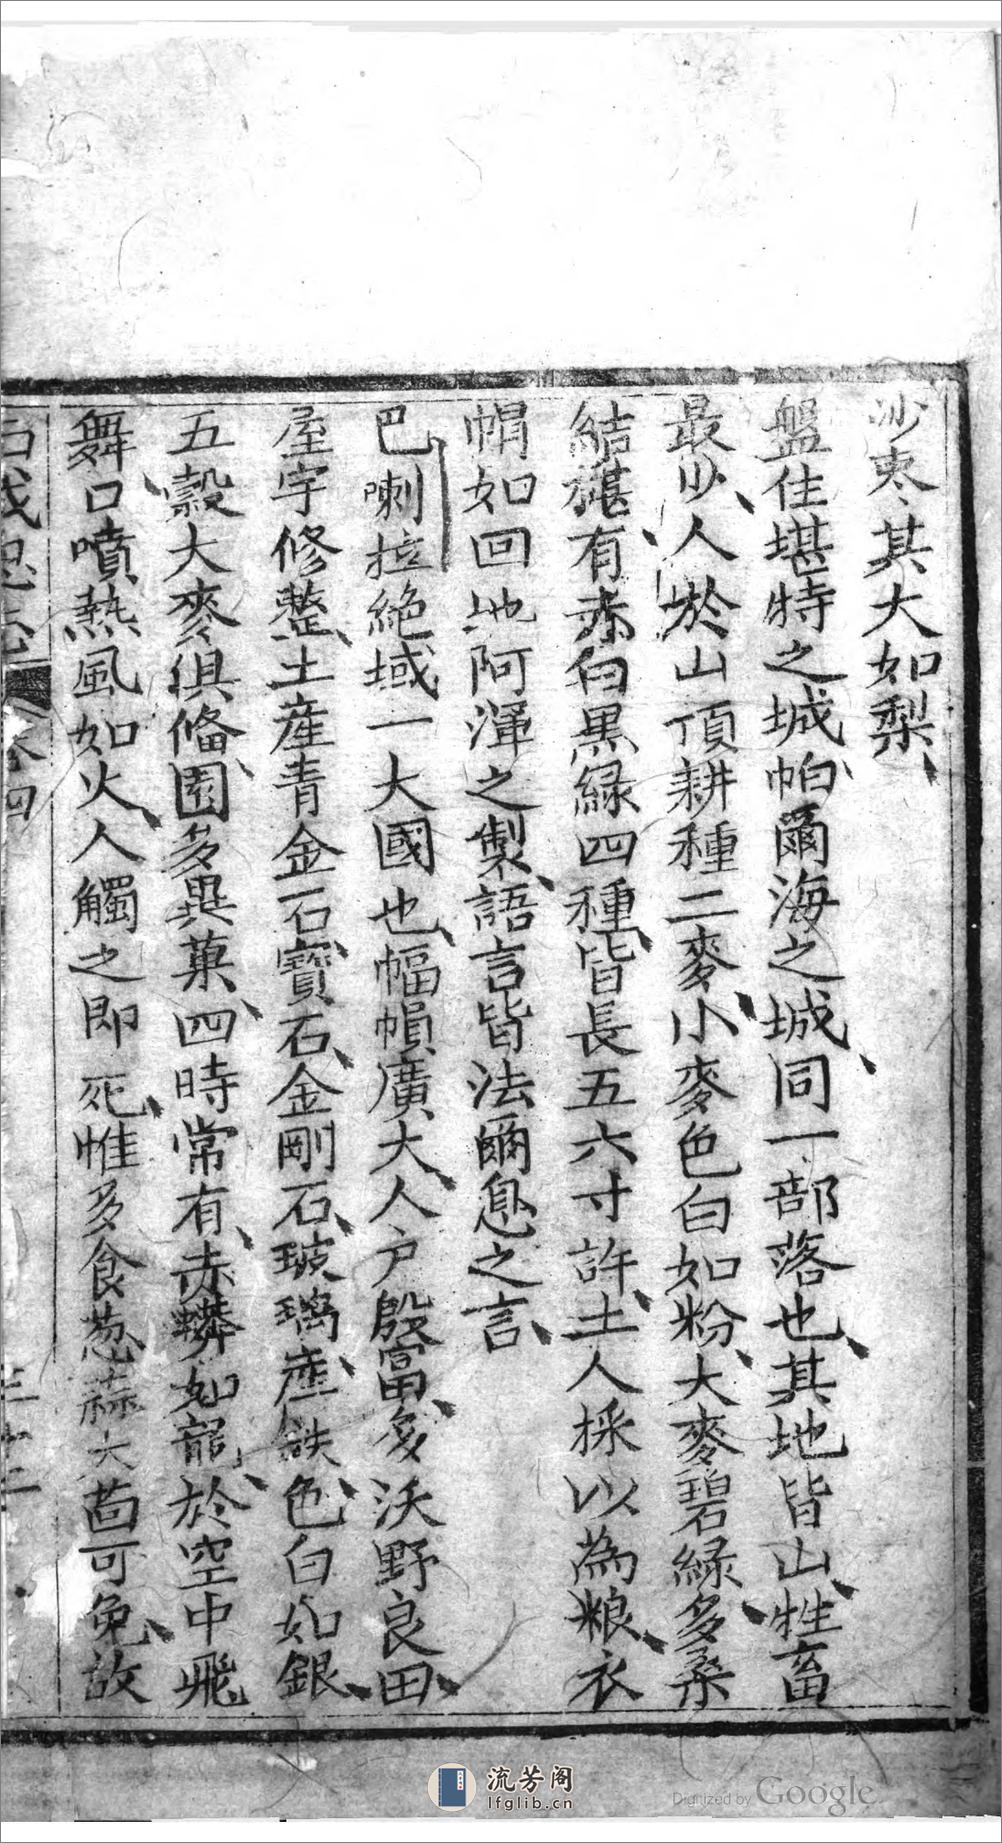 沙枣其大如梨
盤住堪特之城帕爾海之城同一部落也其地皆山牲畜
最少人於山頂耕種二麥小麥色白如粉大麥碧綠多桑
結椹有赤白黑綠四種皆長五六寸許土人採以為粮衣
帽如回地阿渾之製語言皆法爾息之言
巴喇拉絕域一大國也幅幀廣大人户殷富多沃野良田
屋宇修整土產青金石寶石金剛石玻璃產鉄色白如銀
五穀大麥俱俻園多異菓四時常有赤蟒如龍於空中飛
舞口噴熱風如火人觸之即死惟多食葱蒜大茴可免故
卷四
三十二
流芳阁
lfglib.cn
Digitized by Google